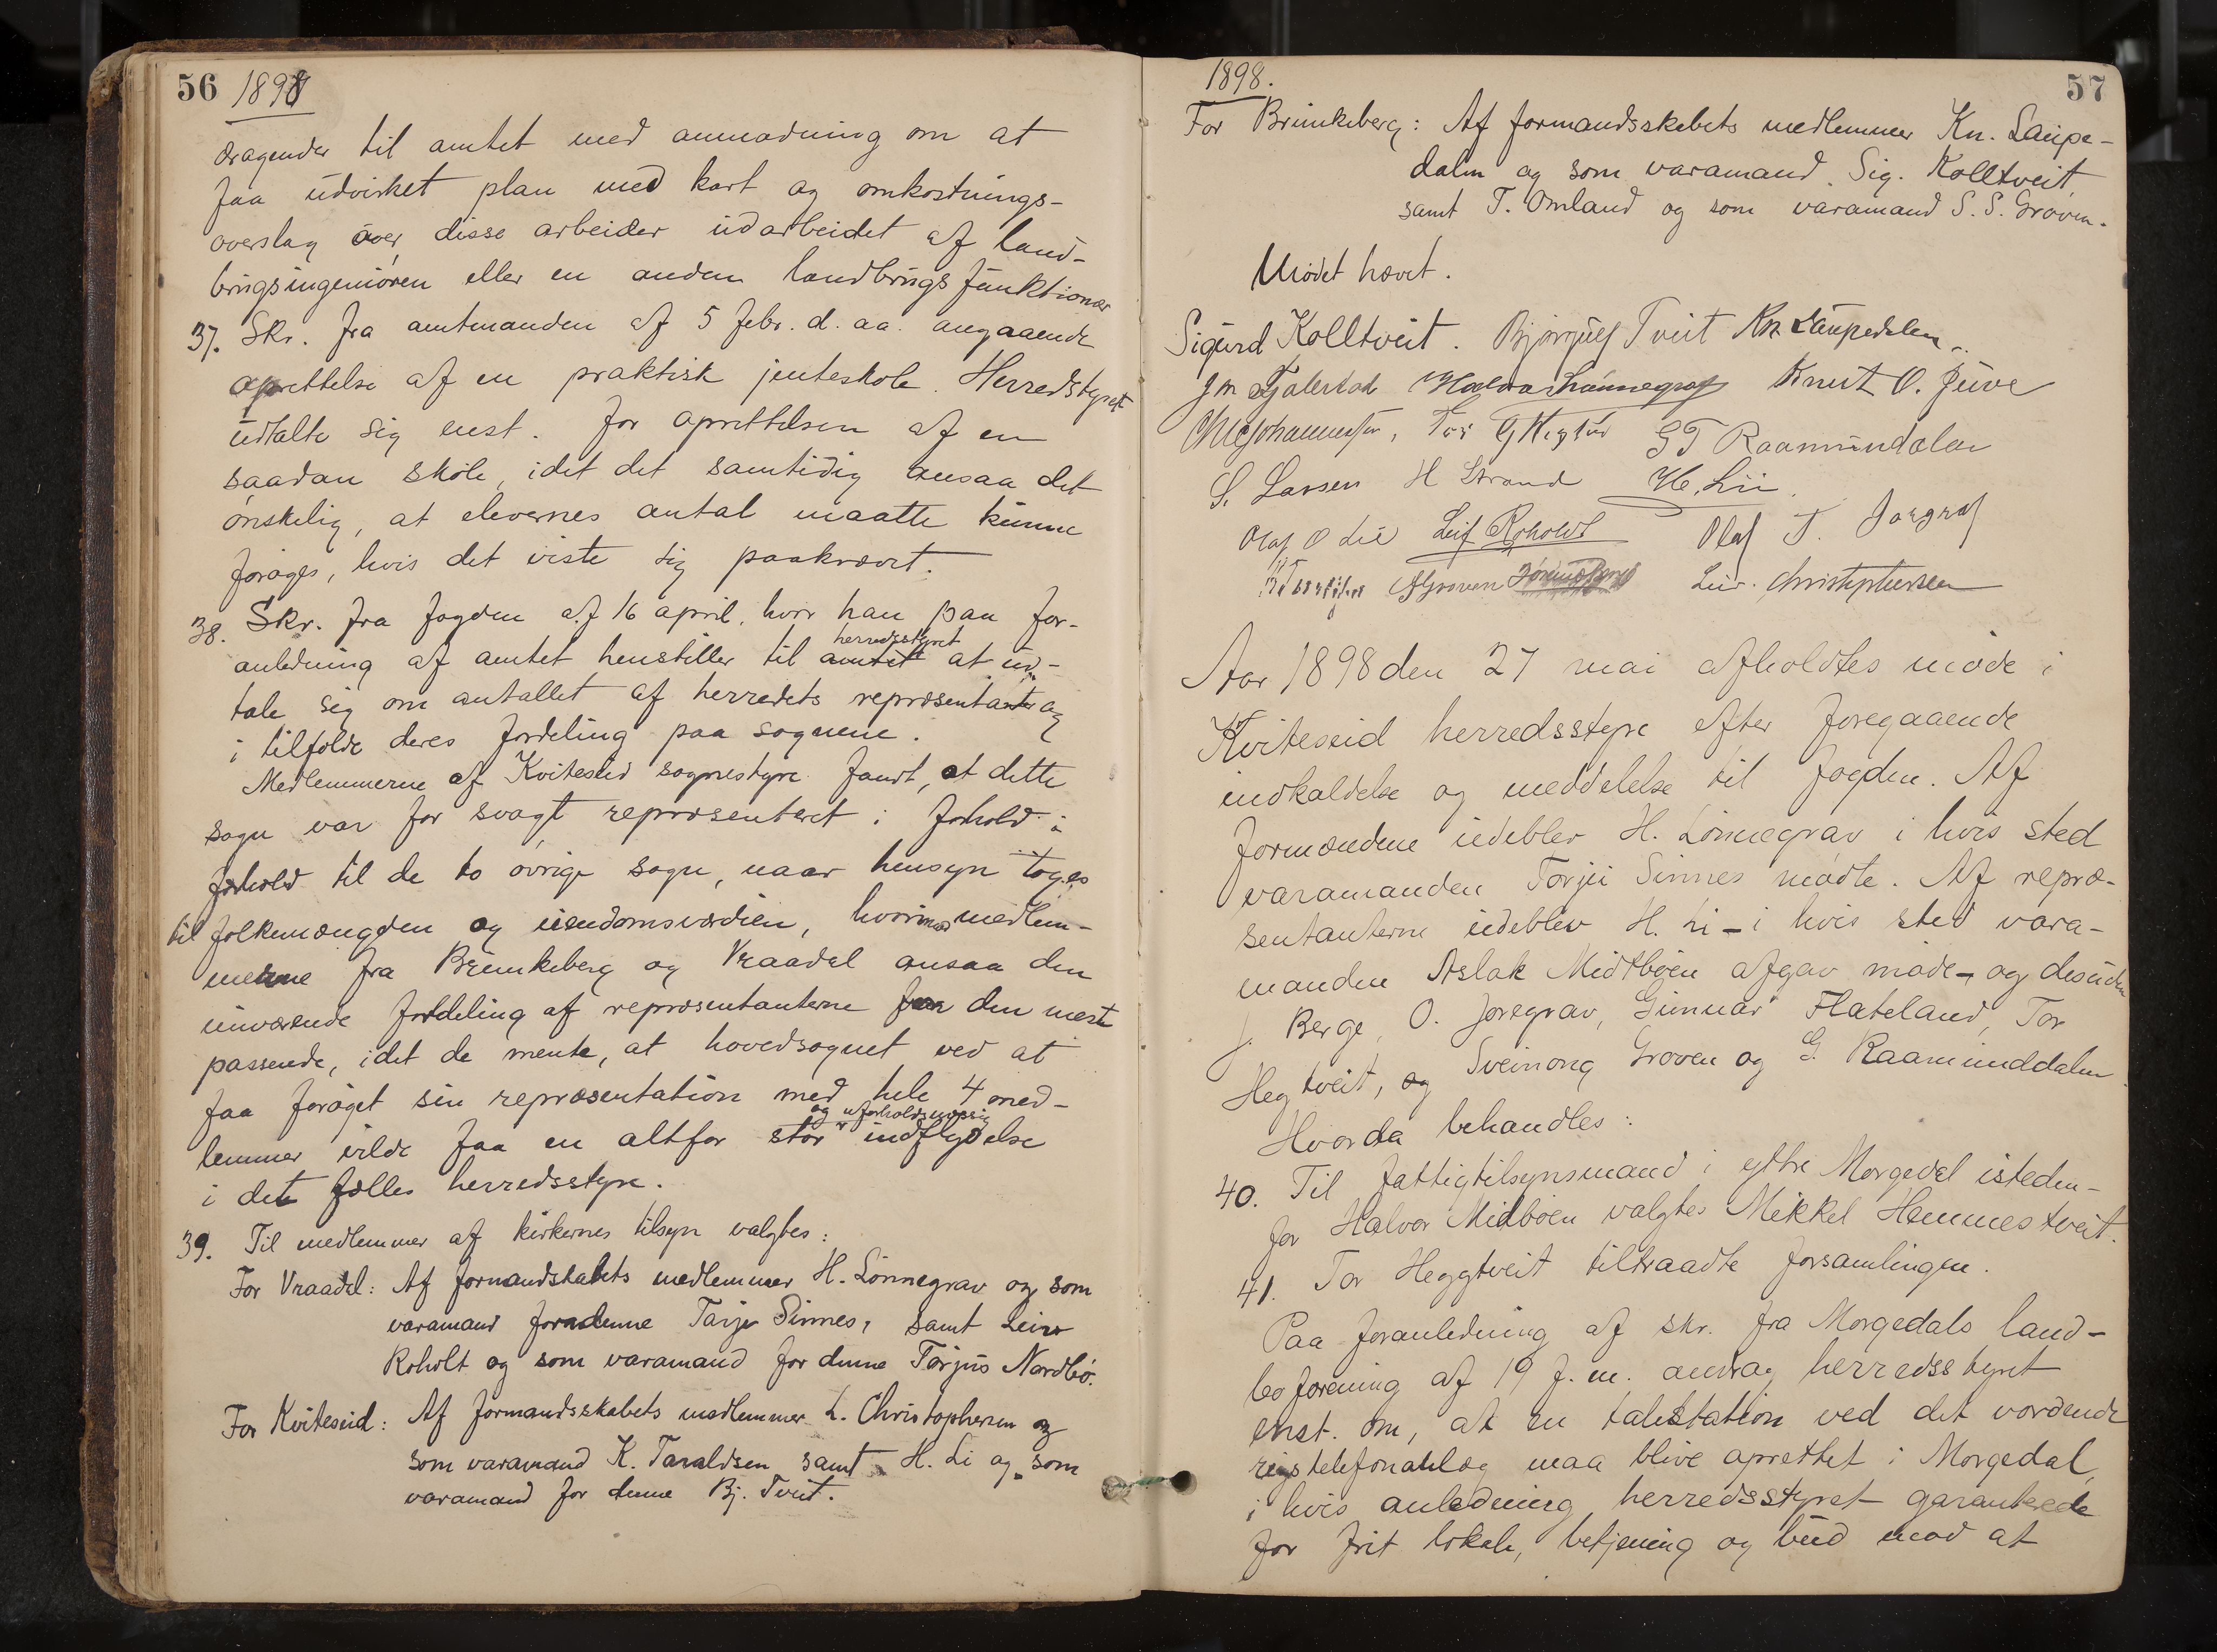 56 1898
dragender til amtet med anmodning om at
faa udvirket plan med kart og omkostnings-
overslag over disse arbeider udarbeidet af land-
brugsingeniøren eller en anden landbrugsfunktionær
37. Skr. fra amtmanden af 5 febr. d. aa. angaaende
oprettelse af en praktisk jenteskole. Herredstyret
udtalte sig enst. for oprettelsen af en
saadan skole, idet det samtidig ansaa det
ønskelig, at elevernes antal maatte kunne
forøges, hvis det viste sig paakrævet.
38. Skr. fra fogden af 16 april, hvor han paa for-
anledning af amtet henstiller til amtet herredsstyret at ud-
tale sig om antallet af herredets repræsentanter og
i tilfælde deres fordeling paa sognene.
Medlemmerne af Kviteseid sognestyre fandt, at dette
sogn var for svagt repræsenteret i forhold i
forhold til de to øvrige sogn, naar hensyn toges
til folkemængden og eiendomsværdien, hvorimod medlem-
merne fra Brunkeberg og Vraadal ansaa den
nuværende fordeling af repræsentanterne for den mest
passende, idet de mente, at hovedsognet ved at
faa forøget sin repræsentation med hele 4 med-
lemmer vilde faa en altfor stor og uforholdsmæssig indflydelse
i det fælles herredsstyre.
39. Til medlemmer af kirkernes tilsyn valgtes:
For Vraadal: Af formandskabets medlemmer H. Lønnegrav og som
varamand for denne Tarje Sinnes, samt Leiv
Roholt og som varamand for denne Tarjus Nordbø.
For Kviteseid: Af formandsskabets medlemmer L. Christophersen og
som varamand K. Taraldsen samt H. Li og som
varamand for denne Bj. Tveit.
1898. 57
For Brunkeberg: Af formandsskabets medlemmer Kn. Laupe-
dalen og som varamand Sig. Kolltveit,
samt T. Omland og som varamand S. S. Groven.
Mødet hævet.
Sigurd Kolltveit. Bjørgulf Tveit Kn Laupedalen
Halvor Lønnegrav Knut O. Juve
G T Raamundalen
S. Larsen H Strand H. Lii
Olaf O Lie Leif Roholdt Olaf T.
Groven Leiv. Christophersen
Aar 1898 den 27 mai afholdtes møde i
Kviteseid herredsstyre efter foregaaende
indkaldelse og meddelelse til fogden. Af
formændene udeblev H. Lønnegrav i hvis sted
varamanden Torjú Sinnes mødte. Af repræ-
sentanterne udeblev H. Li - i hvis sted vara-
manden Aslak Midtbøen afgav møde - og desuden
J. Berge, O. Joregrav, Gunnar Flateland, Tor
Hegtveit, og Sveinong Groven og G. Raamunddalen.
Hvorda behandles:
40. Til fattigtilsynsmand i ytre Morgedal isteden-
for Halvor Midbøen valgtes Mikkel Hemmestveit.
41. Tor Heggtveit tiltraadte forsamlingen.
Paa foranledning af skr. fra Morgedals land-
boforening af 19 f. m. androg herredsstyret
enst. om, at en talestation ved det vordende
rigstelefonanlæg maa blive oprettet i Morgedal,
i hvis anledning herredsstyret garanterede
for frit lokale, betjening og bud mod at